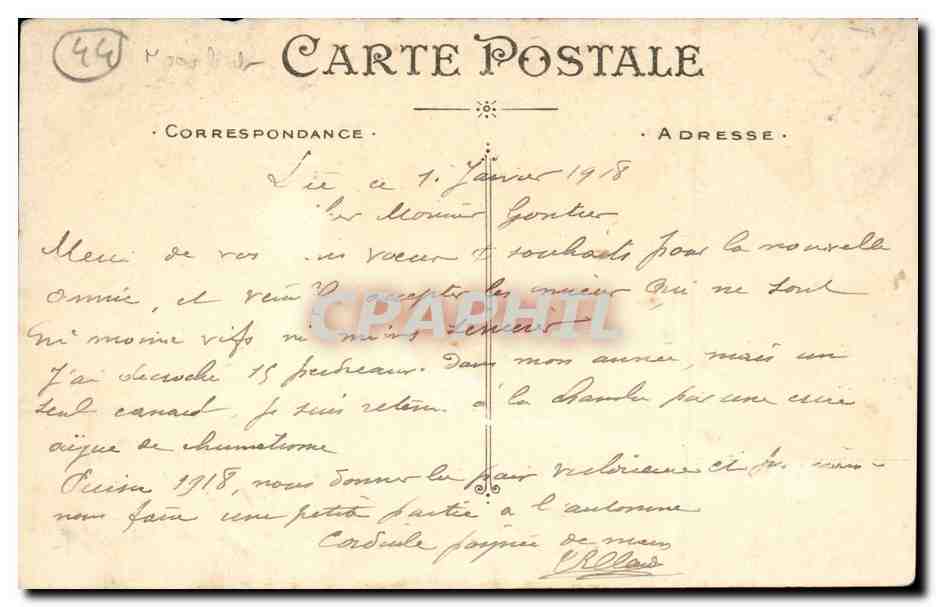 44
CARTE POSTALE
· CORRESPONDANCE ·
· ADRESSE ·
ce 1. Janvier 1918
Cher Monsieur Gontier
Merci de vos voeux & souhaits pour la nouvelle
année, et veuillez accepter les miens Qui ne sont
ni moins vifs ni moins
J'ai décroché 15 perdreaux. Dans mon année, mais un
seul canard, je suis retenu à la chambre par une crise
aigue de rhumatisme
Puisse 1918, nous donner la paix victorieuse et
nous faire une petite partie à l'automne
Cordiale poignée de main
CPAPHIL